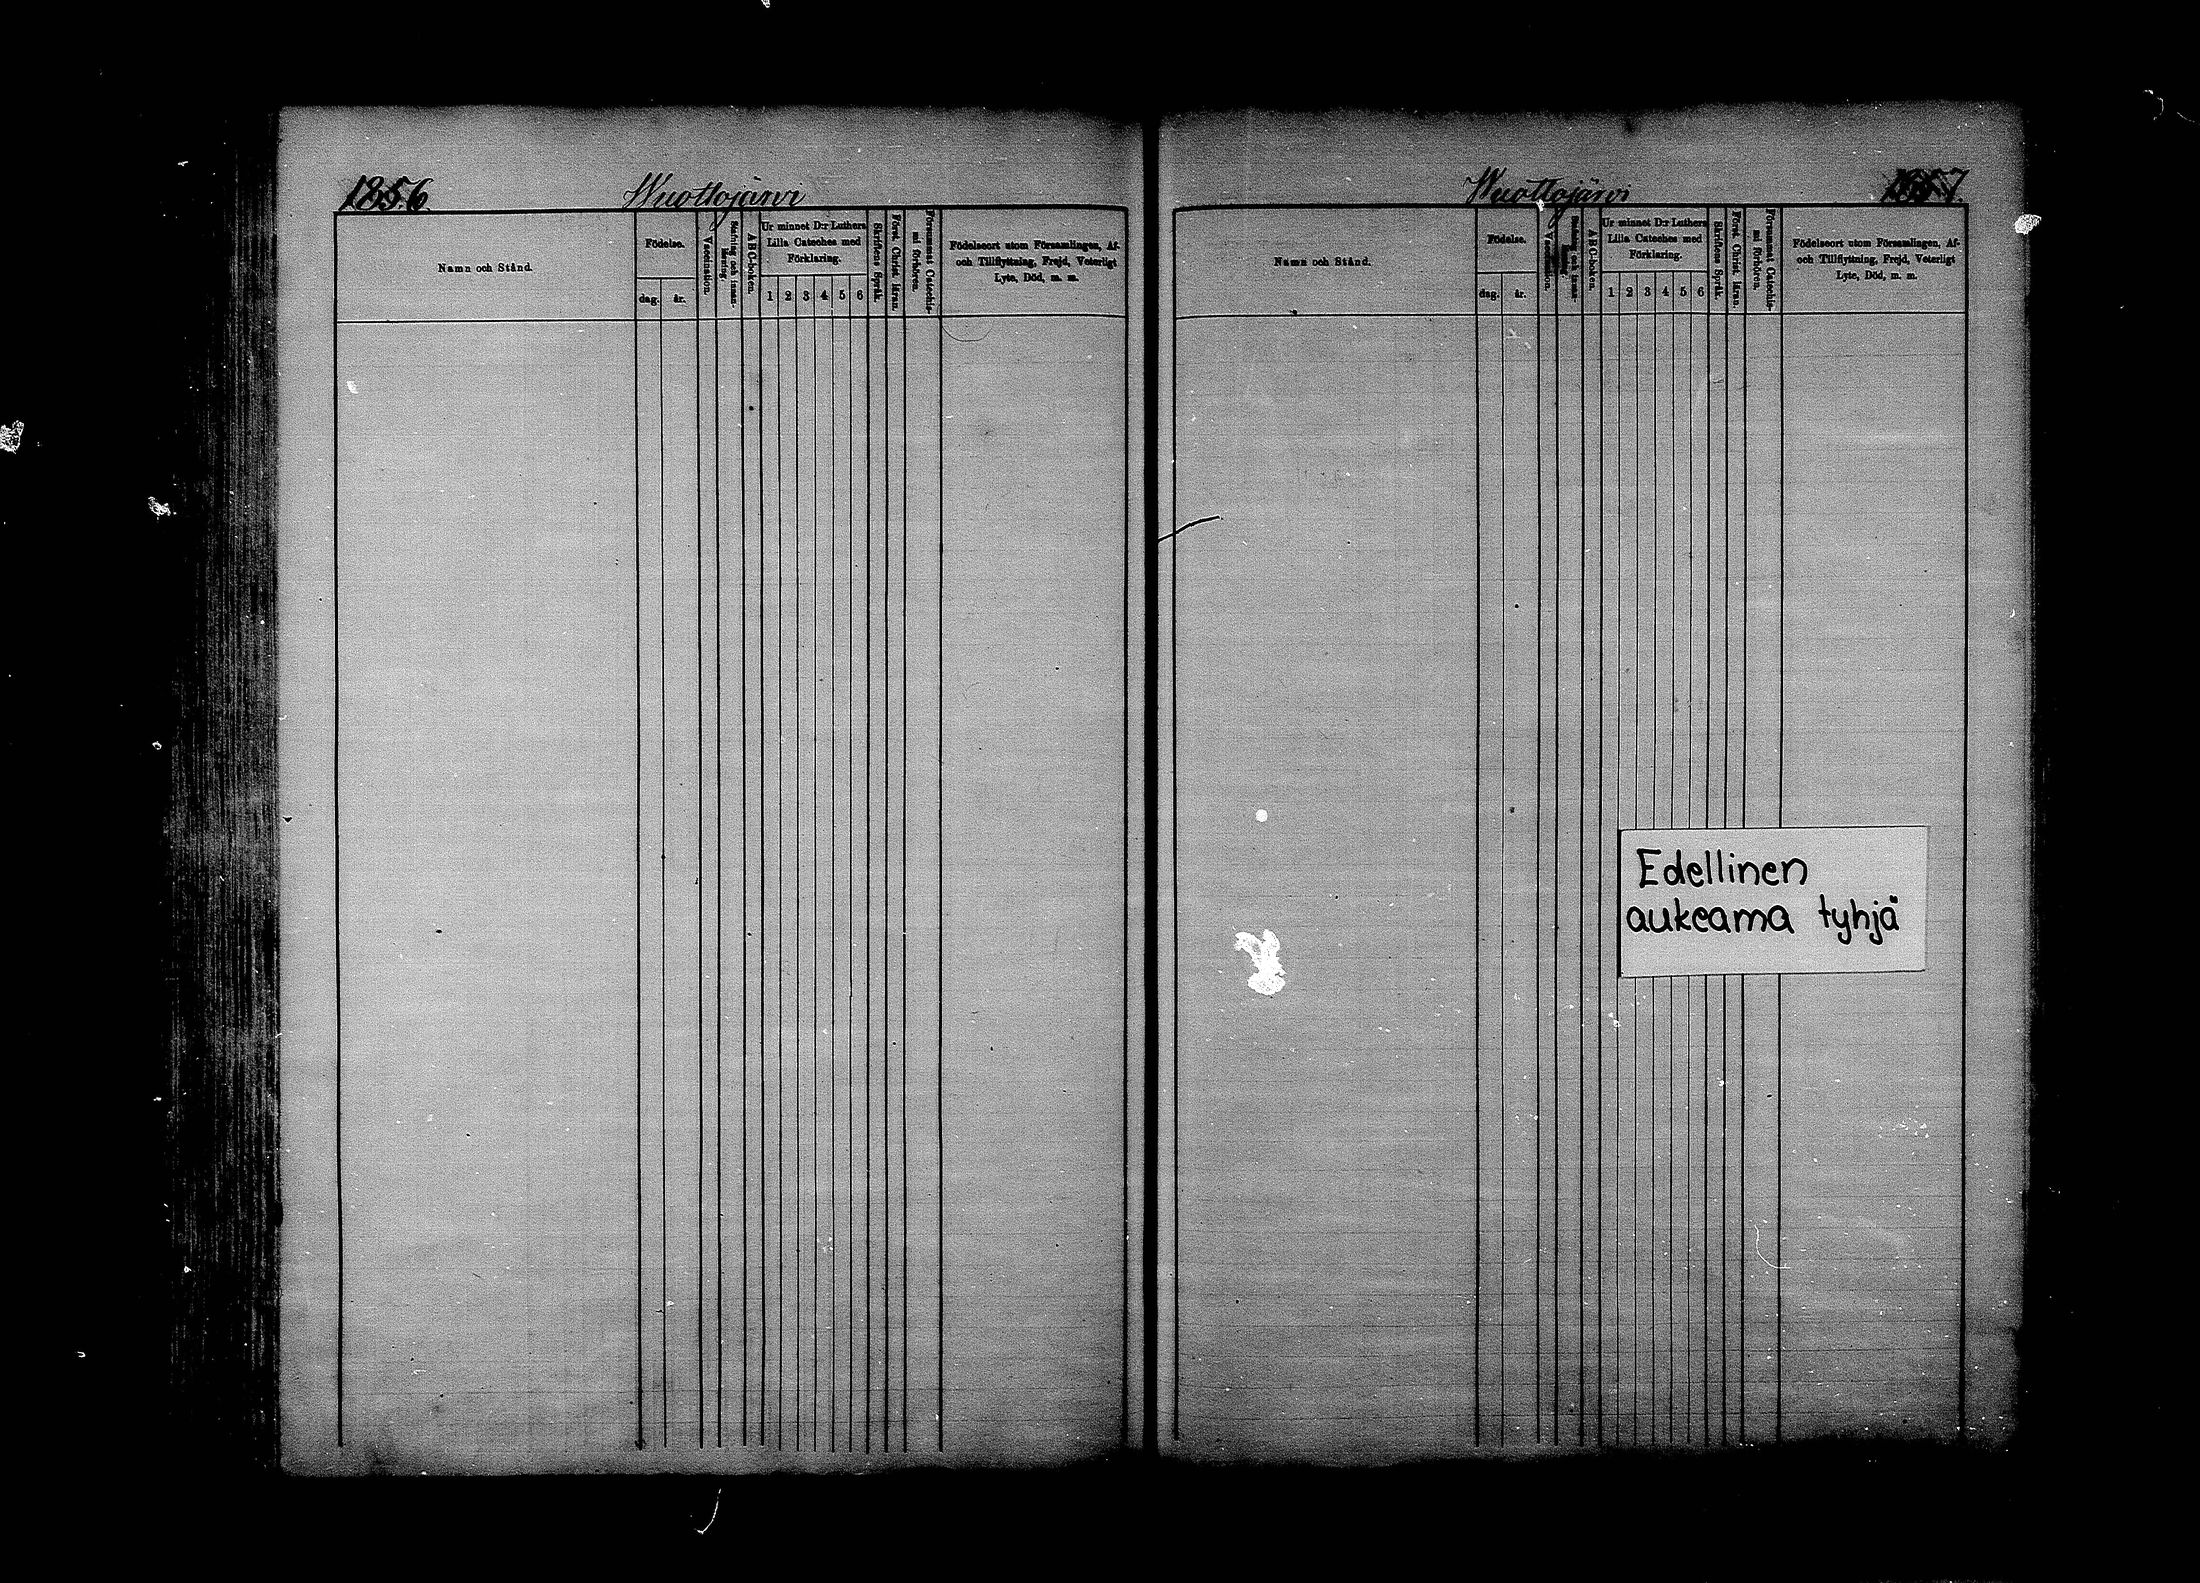 1856.
Wuottojärvi
Namn och Stånd.
Födelse.
dag. år.
Vaccination.
Stafning och innan-
läsning.
A B C-boken.
Ur minnet D:r Luthers
Lilla Cateches med
Förklaring.
1 2 3 4 5 6
Skriftens Språk.
Först. Christ. läran.
Försummat Catechis-
mi förhören.
Födelseort utom Församlingen, Af-
och Tillflyttning, Frejd, Veterligt
Lyte, Död, m. m.
Wuottojärvi
1857.
Namn och Stånd.
Födelse.
dag. år.
A B C-boken.
Ur minnet D:r Luthers
Lilla Cateches med
Förklaring.
1 2 3 4 5 6
Skriftens Språk.
Först. Christ. läran.
Försummat Catechis-
mi förhören.
Födelseort utom Församlingen, Af-
och Tillflyttning, Frejd, Veterligt
Lyte, Död, m. m.
Edellinen
aukeama tyhjä